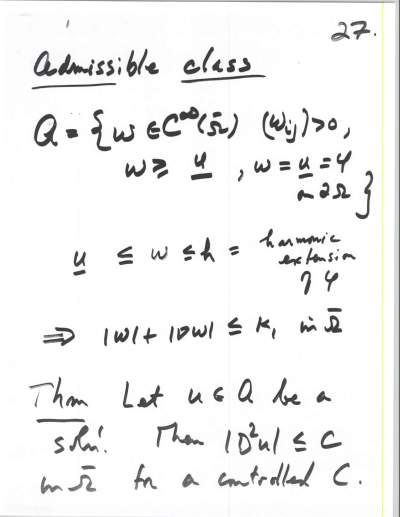 27.
Admissible class
Q = {w ∈ C^∞(Ω̄) (w_ij) > 0,
w ≥ u̲ , w = u̲ = φ
on ∂Ω}
u̲ ≤ w ≤ h = harmonic
extension
of φ
⇒ |w| + |Dw| ≤ K₁ in Ω̄
Thm Let u ∈ Q be a
soln. Then |D²u| ≤ C
in Ω̄ for a controlled C.